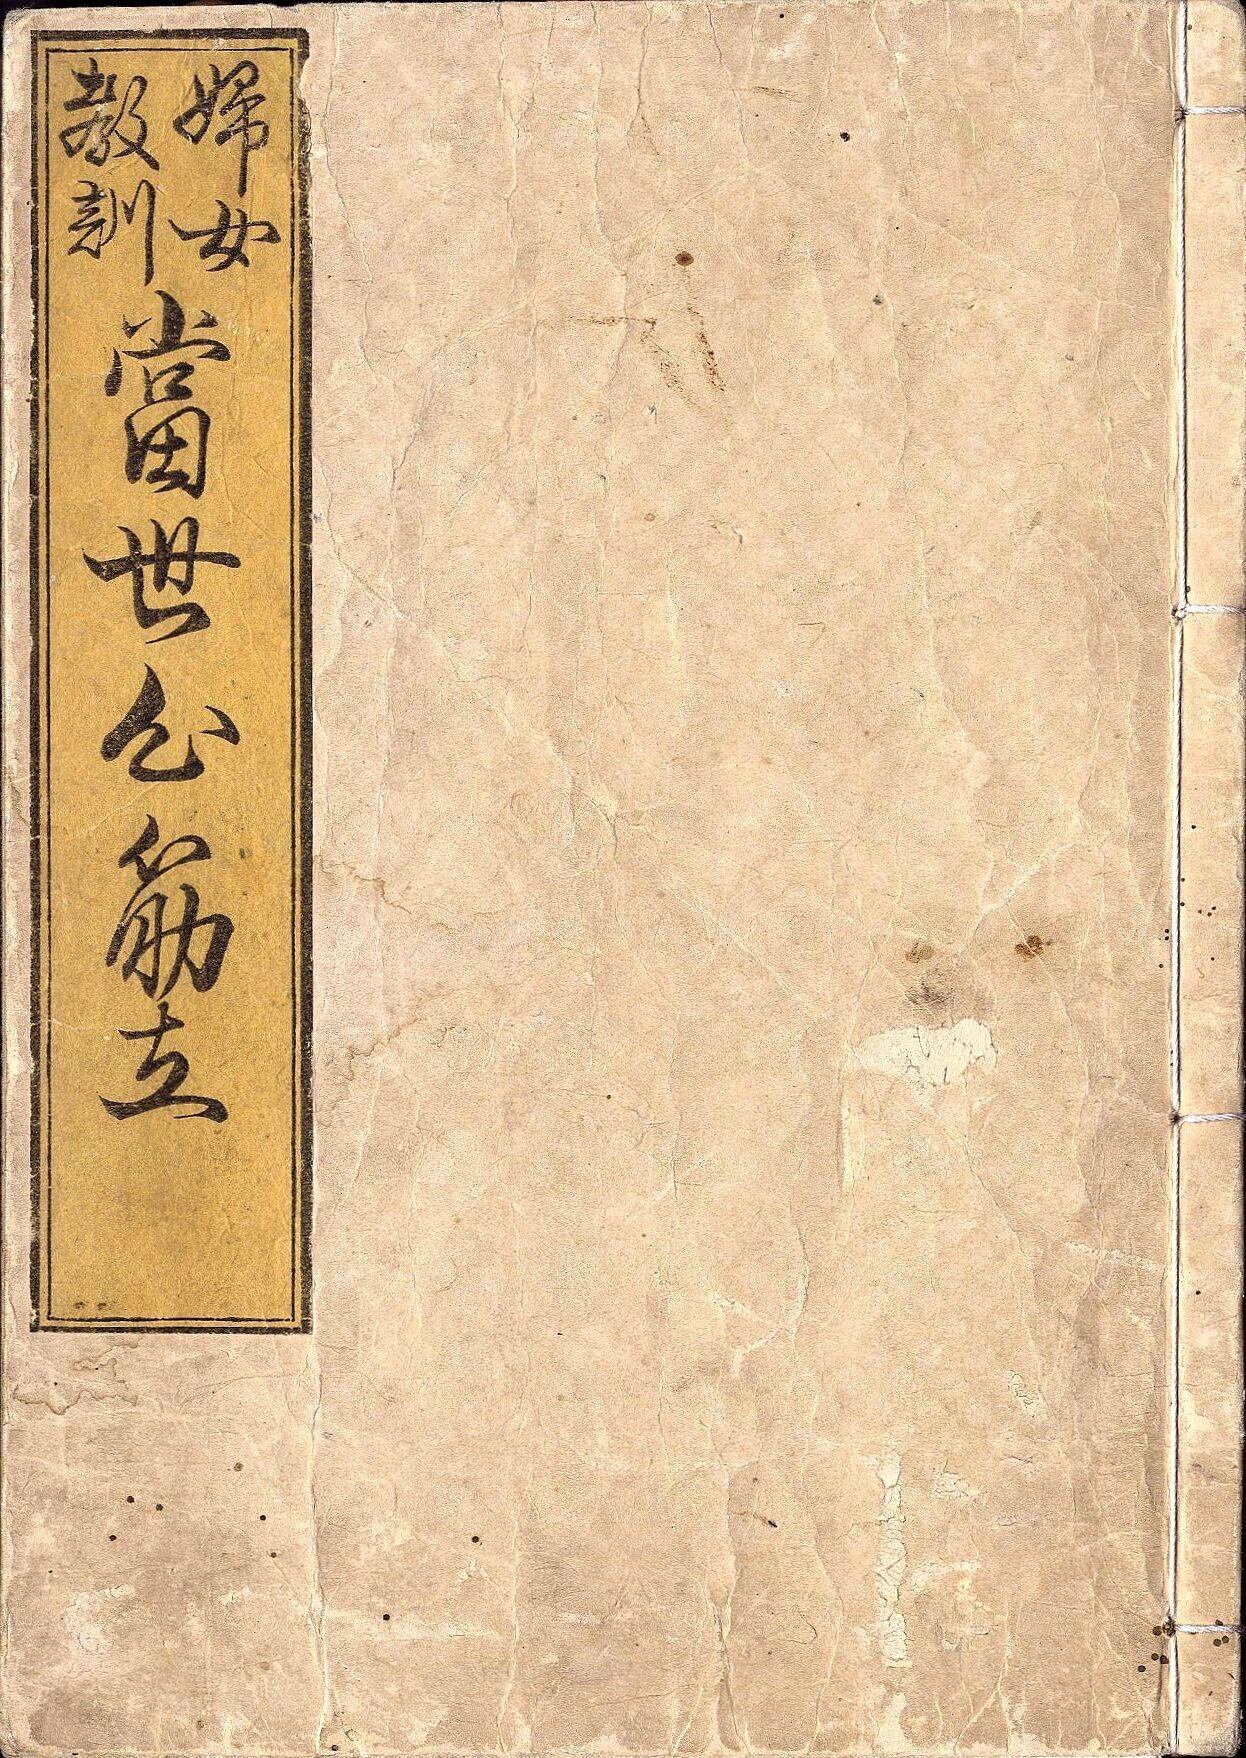 婦女
教訓
當世心筋立